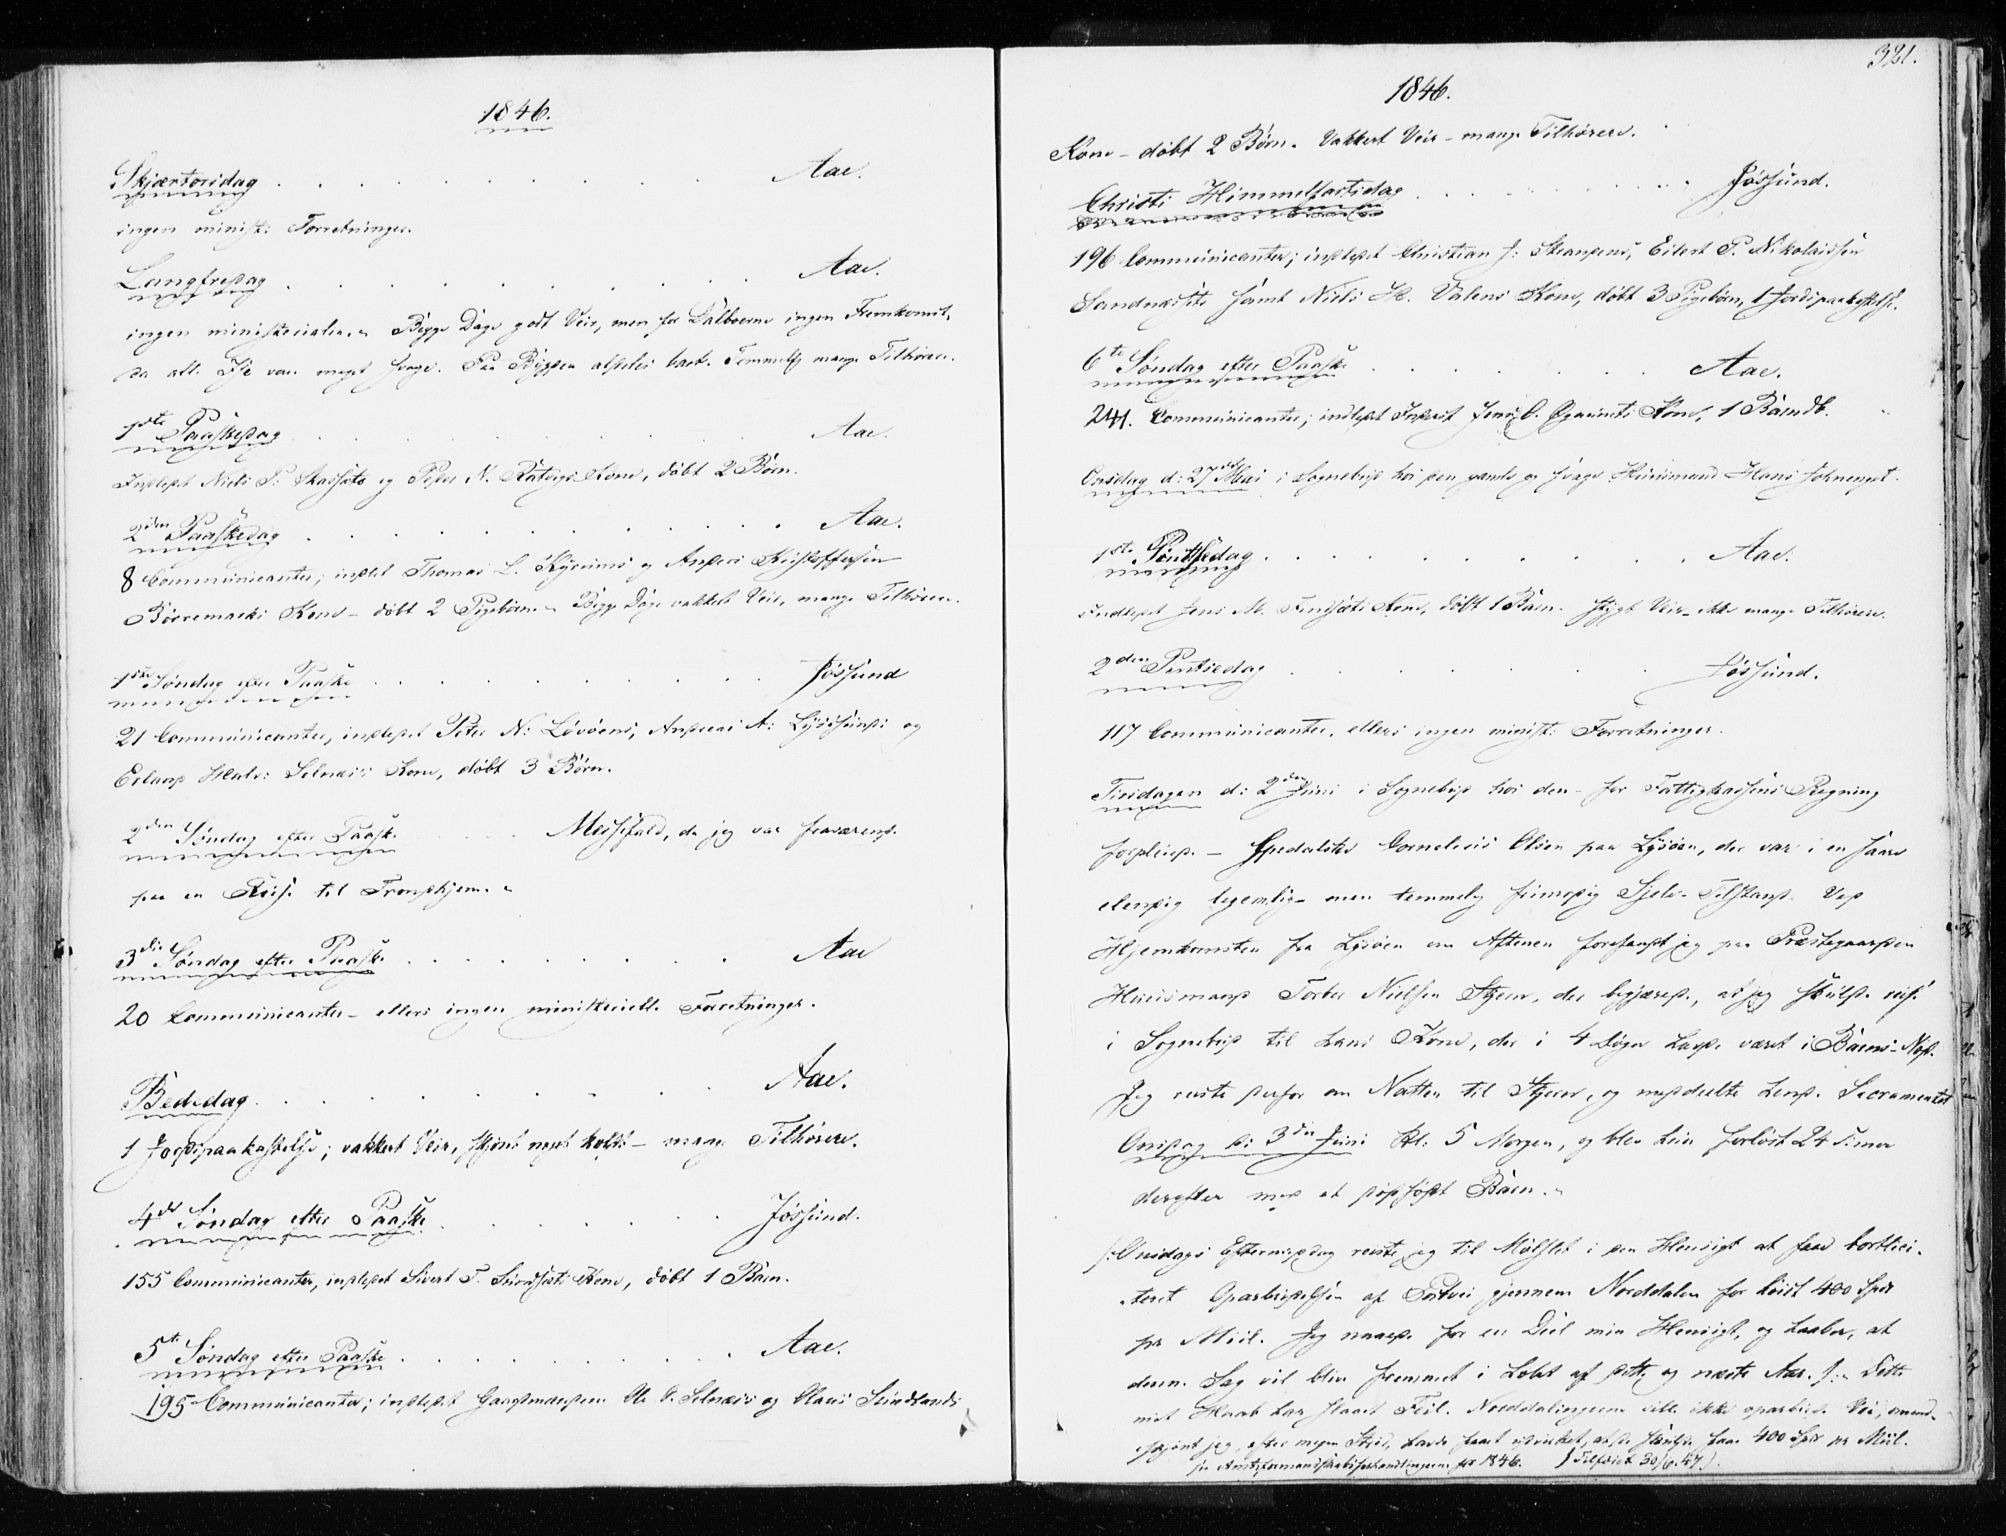 1846.
Skjærtorsdag . . . . . . . . . . Aae.
ingen minist: Forretninger.
Langfredag . . . . . . . . . . Aae.
ingen ministerialia. Begge Dage godt Veir, men for Dalboerne ingen Fremkomst,
da all Is var meget svag. Paa Bygden aldeles bart. Temmelig mange Tilhørere.
1ste Paaskedag . . . . . . . . . . Aae.
Indledet Niels P: Skarsæts og Peder N. Ratvigs Kone, døbt 2 Børn.
2den Paaskedag . . . . . . . . . . Aae.
8 Communicanter; indledet Thomas L. Kyrums og Anders Kristoffersen
Børremarks Kone – døbt 2 Pigebørn. Begge Dage vakkert Veir, mange Tilhørere.
1ste Søndag efter Paaske . . . . . . . . Jøssund
21 Communicanter, indledet Peter N: Løvøens, Andreas A: Lysøsunds og
Erland Halv: Selnæs's Kone, døbt 3 Børn.
2den Søndag efter Paaske . . . . Messefald, da jeg var fraværende
paa en Reise til Trondhjem.
3die Søndag efter Paaske . . . . . . . . Aae
20 Communicanter – ellers ingen ministerielle Forretninger.
Bededag . . . . . . . . . . Aae.
1 Jordspaakastelse; vakkert Veir, skjønt noget koldt – mange Tilhørere.
4de Søndag efter Paaske . . . . . . . . Jøssund.
155 Communicanter, indledet Sivert T. Sundsæts Kone, døbt 1 Barn.
5te Søndag efter Paaske . . . . . . . . Aae.
195 Communicanter; indledet Gaardmanden Ole O. Selnæs's og Claus Sundlands
321.
1846.
Kone – døbt 2 Børn. Vakkert Veir – mange Tilhørere.
Christi Himmelfartsdag . . . . . . . . Jøssund.
196 Communicanter; indledet Christian J: Strandens, Eilert P. Nikolaissen
Sandnæssets samt Niels H. Valens Kone, døbt 3 Pigebørn, 1 Jordspaakastelse.
6te Søndag efter Paaske . . . . . . . . Aae.
241. Communicanter; indledet Jens O. Kone, 1 Barnedb.
Onsdag d: 27de Mai i Sognebud hos den gamle og svage Huusmand Hans
1ste Pintsedag . . . . . . . . . . Aae.
Indledet Jens M. Kone, døbt 1 Barn. Stygt Veir – ikke mange Tilhørere.
2den Pintsedag . . . . . . . . Jøssund.
117 Communicanter, ellers ingen minist: Forretninger.
Tirsdagen d: 2den Juni i Sognebud hos den – for Fattigkassens Regning
forpleiede – Spedalske Cornelius Olsen paa Lysøen, der var i en saare
elendig legemlig – men temmelig fornøielig Sjels-Tilstand. Ved
Hjemkomsten fra Lysøen om Aftenen forefandt jeg paa Præstegaarden
Huusmand Torber Nielsen Stjern, der begjærede, at jeg skulde reise
i Sognebud til hans Kone, der i 4 Døgn havde været i Barns-Nød.
Jeg reiste derfor om Natten til Stjern, og meddeelte hende Sacramentet
Onsdag d: 3die Juni Kl: 5 Morgen, og blev hun forløst 24 Timer
derefter med et dødfødt Barn.
/: Onsdags Eftermiddag reiste jeg til Melslet i den Hensigt at faae bortlici-
teret Oparbeidelsen af Postvei gjennem Norddalen for høist 400 Spd
pr Miil. Jeg naaede for en Deel min Hensigt, og haaber, at
denne Sag vil blive fremmet i Løbet af dette og næste Aar. :/ Dette
mit Haab har slaaet Feil. Norddalingerne ville ikke oparbeide Vei, uagt-
skjønt jeg, efter megen Strid, havde faaet udvirket, at de skulde faae 400 Spd pr Miil.
se Amtsformandskabsforhandlingerne for 1846. (Tilføiet 30/6 47).